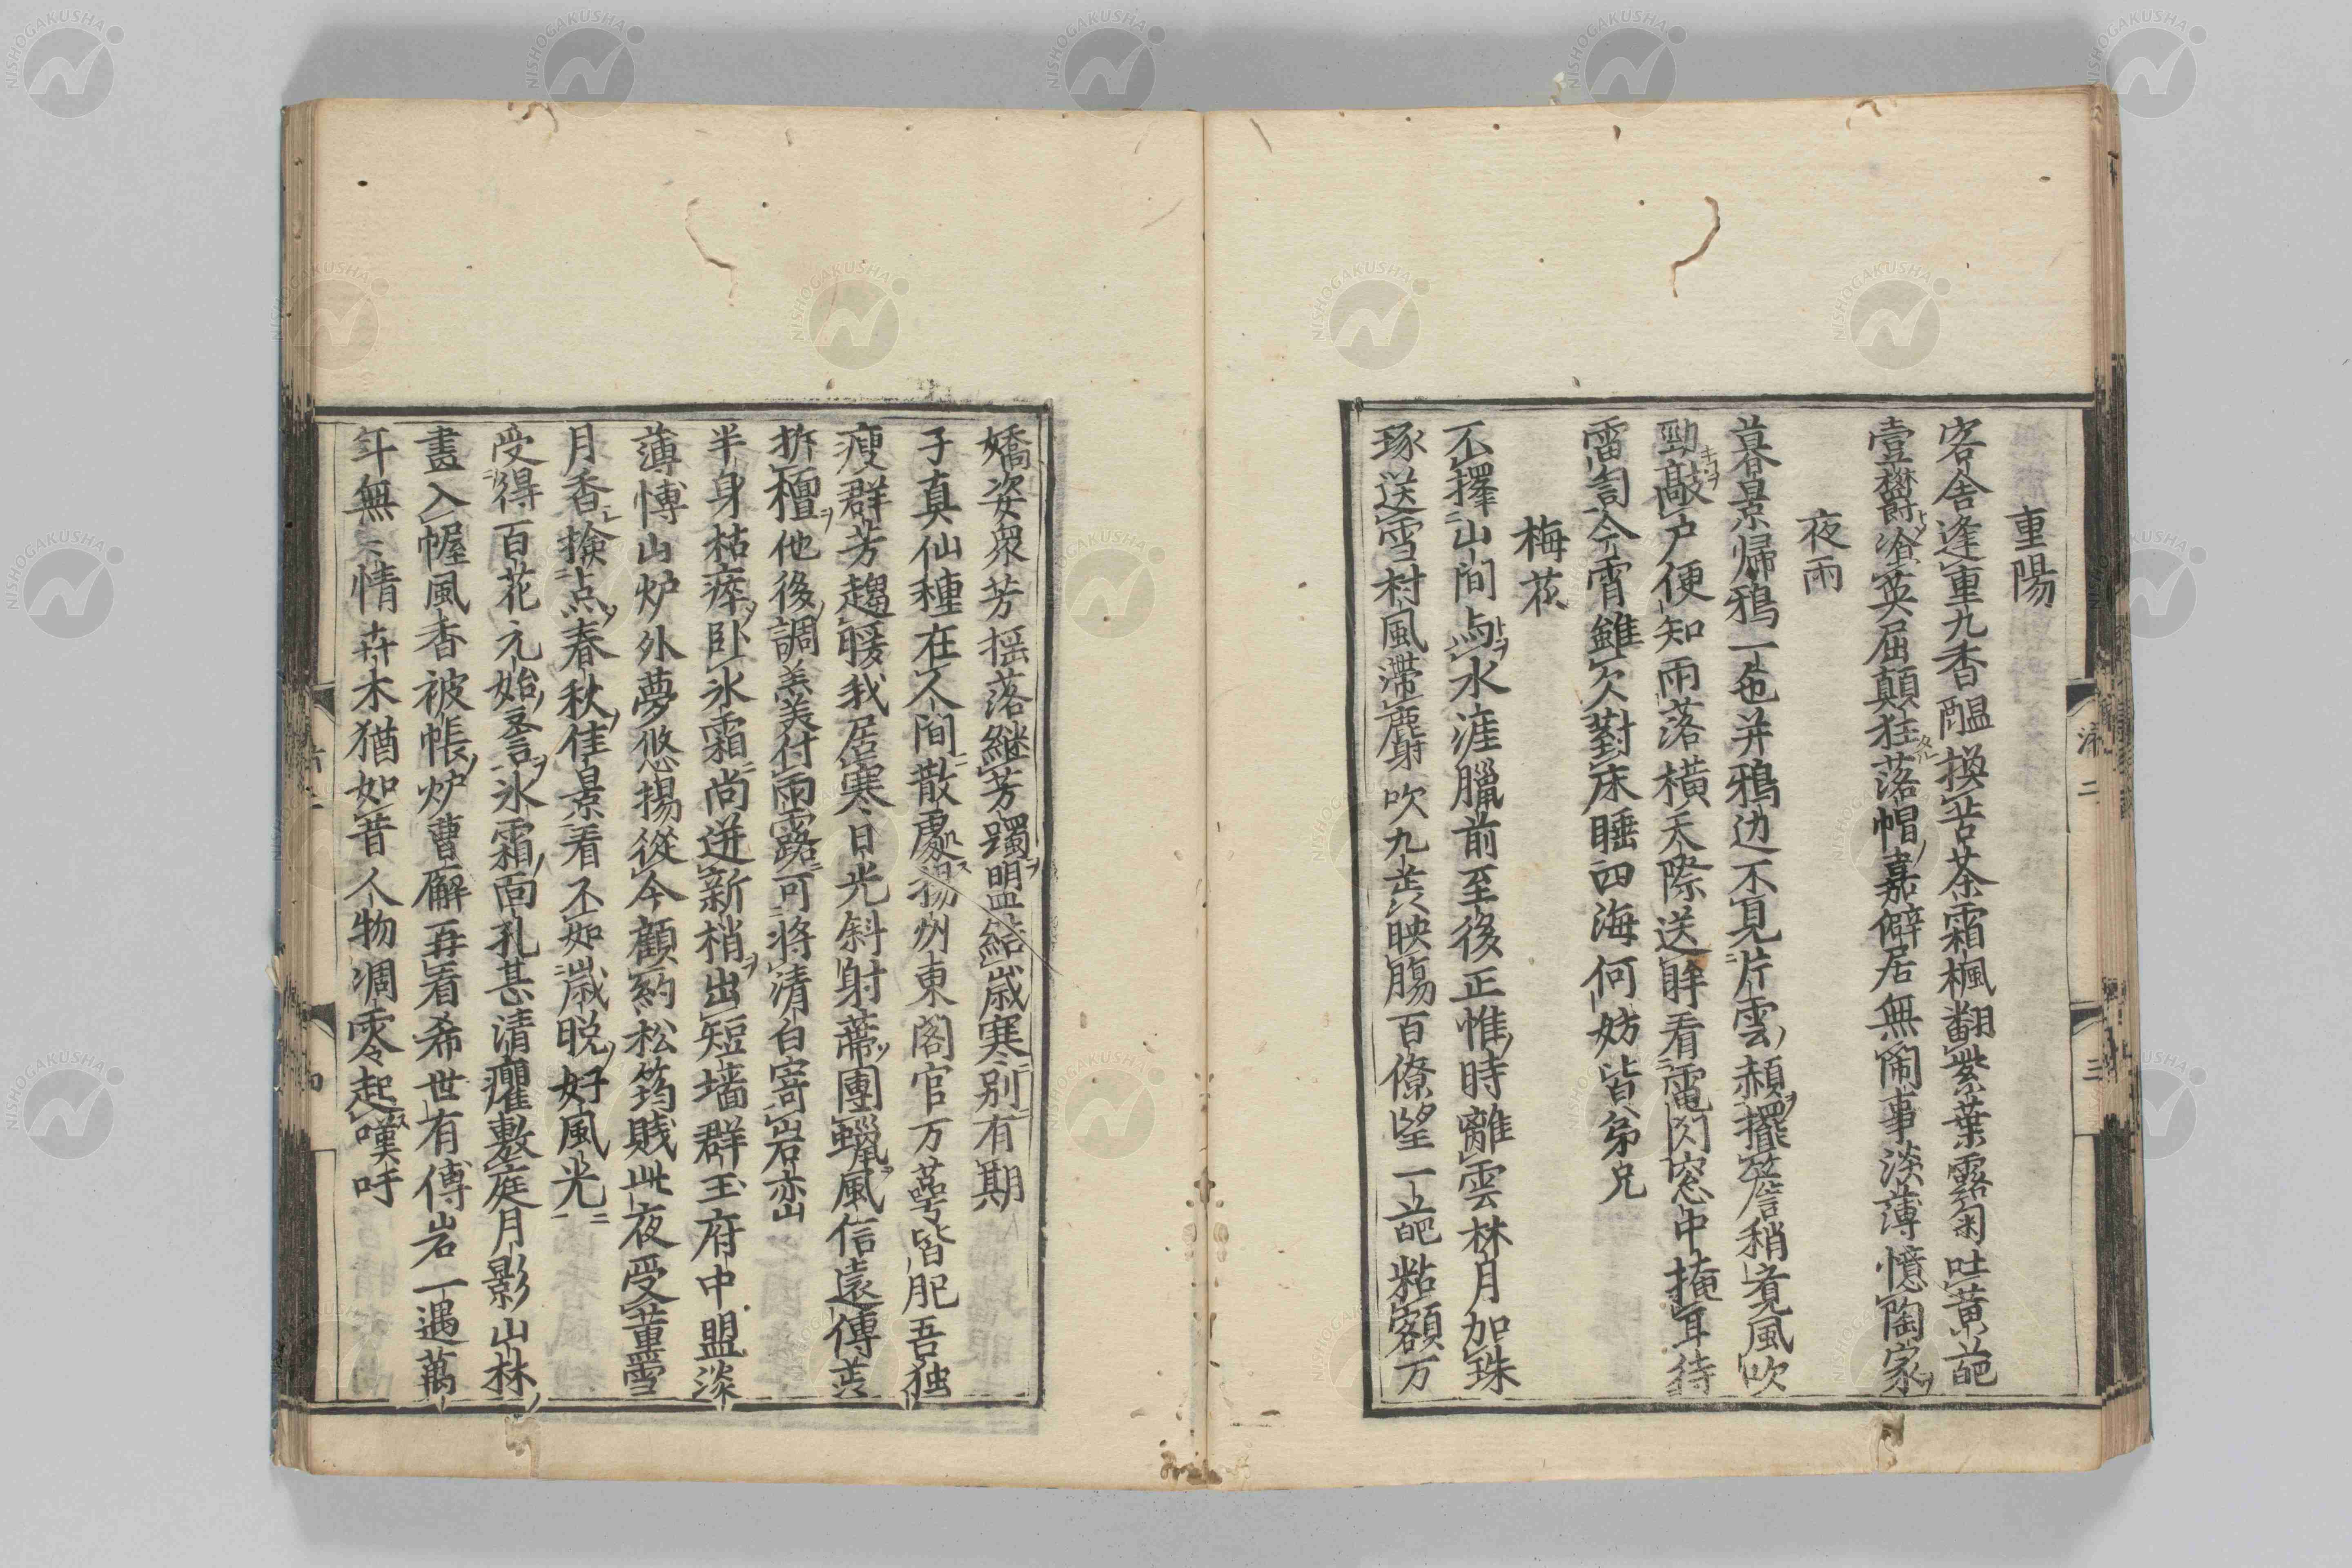 重陽
客舎逢重九香醖換苦茶霜楓翻紫葉露菊吐黄葩
壹欝飡英屈顛狂落帽嘉僻居無閙事淡薄憶陶家
夜雨
暮景帰鴉一色并鴉辺不見片雲頳擺簷稍覚風吹
勁敲戸便知雨落横天際送眸看電閃窓中掩耳待
雷訇今宵雖欠對床睡四海何妨皆弟兄
梅花
不擇山間与水涯臘前至後正惟時離雲林月加珠
琢送雪村風滞麝吹九蕋映腸百僚望一葩粘額万
嬌姿衆芳揺落継芳躅盟結歳寒別有期
子真仙種在人間散處揚州東閣官万蕚皆肥吾独
痩群芳趨暖我居寒日光斜射蒂團蠟風信遠傳蕋
拆檀他後調羹付雨露可将清白寄岩山
半身枯瘁卧氷霜尚迸新梢出短墻群玉府中盟淡
薄博山炉外夢悠揚從今顧約松筠賎此夜受薫雪
月香撿点春秋佳景看不如歳晩好風光
受得百花元始氷霜面孔甚清癯敷庭月影山林
畫入幄風香被帳炉曹廨再看希世有傅岩一遇萬
年無情卉木猶如昔人物凋零起嘆吁
NISHOGAKUSHA